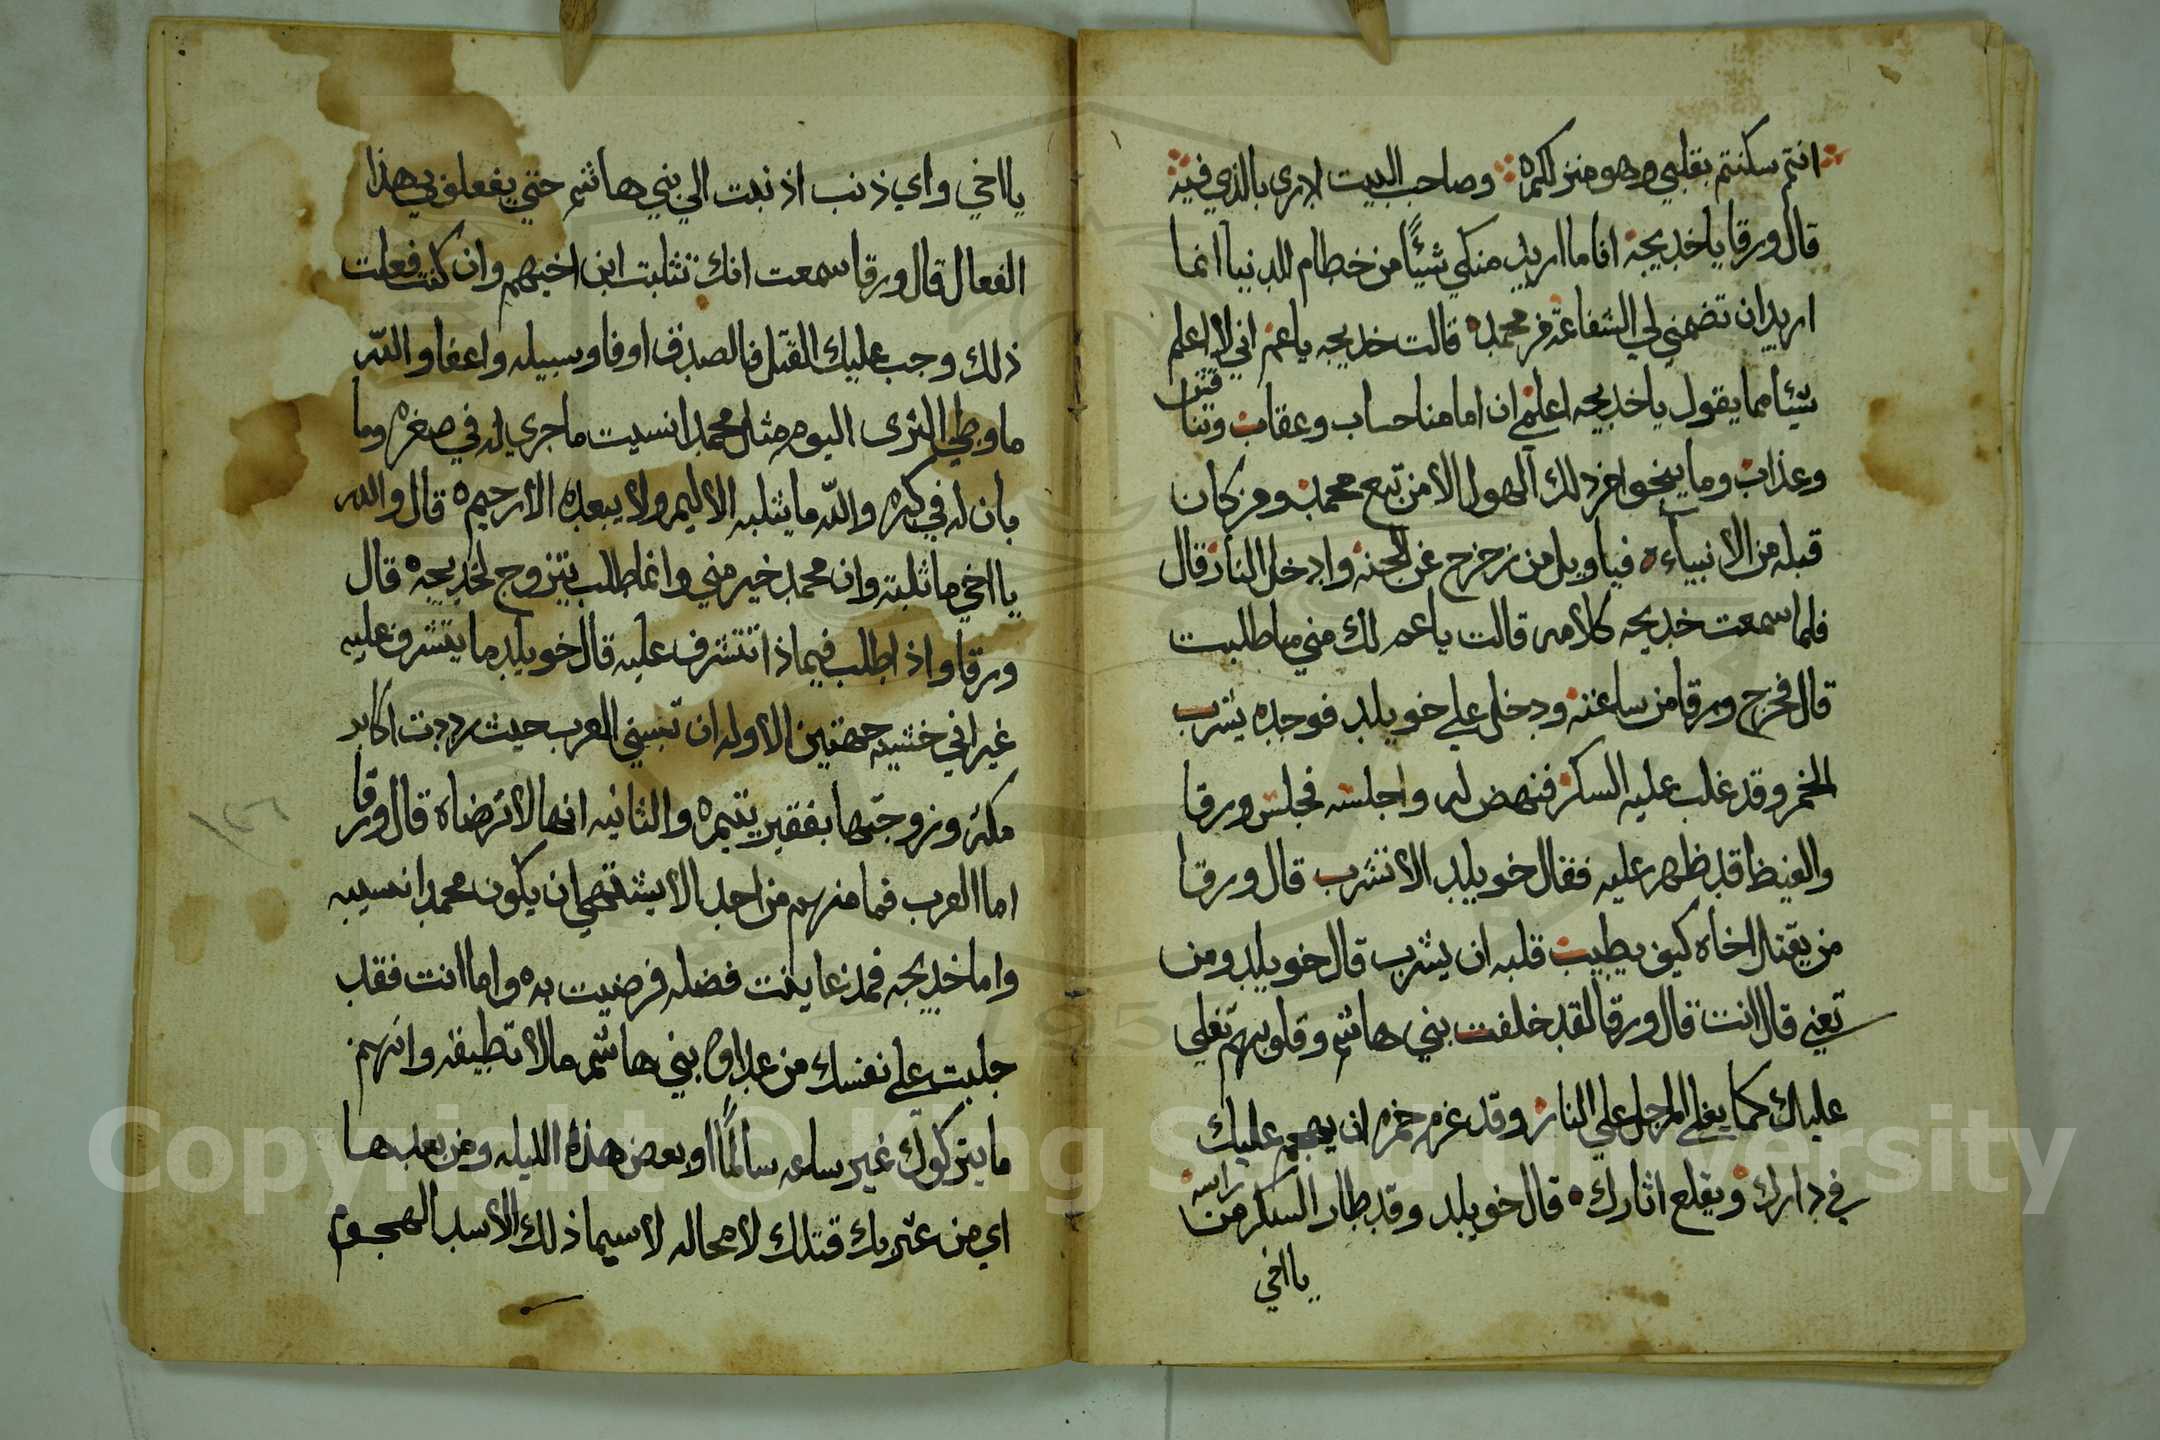 انتم سكنتم بقلبي وهو منزلكم وصاحب البيت ادرى بالذي فيه
قال ورقا يا خديجة انا ما اريد منكي شيئًا من خطام الدنيا انما
اريد ان تضمني لي الشفاعة من محمد قالت خديجه يا عم اني لا اعلم
شيئا مما يقول يا خديجه اعلمي ان امامنا حساب وعقاب
وعذاب وما ينجوا من ذلك الهول الا من تبع محمد ومن كان
قبله من الانبياء فيا ويل من زحزح عن الجنه وادخل النار قال
فلما سمعت خديجه كلامه قالت يا عم لك مني ما طلبت
قال فخرج ورقا من ساعته ودخل علي خويلد فوجده يشرب
الخمر وقد غلب عليه السكر فنهض له واجلسه فجلس ورقا
والغيظ قد ظهر عليه فقال خويلد الا تشرب قال ورقا
من يقتل اخاه كيف يطيب قلبه ان يشرب قال خويلد ومن
تعني قال انت قال ورقا لقد خلفت بني هاشم وقلوبهم تغلي
عليك كما يغلي المرجل علي النار وقد عزم حمزه ان يهجم عليك
في دارك ويقلع اثارك قال خويلد وقد طار السكر من راسه
يا اخي
يا اخي واي ذنب اذنبت الي بني هاشم حتي يفعلو بي هذا
الفعال قال ورقا سمعت انك تثلبت ابن اخيهم وان كنت فعلت
ذلك وجب عليك القتل فالصدق اوفا وسبيله واعفا والله
ما وطي الثرى اليوم مثل محمد انسيت ما جري له في صغره وما
بان له في كبره والله ما يثلبه الا ليم ولا يبعده الا رجيم قال والله
يا اخي ما ثلبته وان محمد خير مني وانما طلب يتزوج لخديجه قال
ورقا واذا طلب فيماذا تتشرف عليه قال خويلد ما يتشرف عليه
غير اني خشيه جهتين الاوله ان تسبني العرب حيث رددت اكابر
مكة وزوجتها بفقير يتيم والثانيه انها لا ترضاه قال ورقا
اما العرب فما منهم من احد الا يشتهي ان يكون محمد انسيبه
واما خديجه فمذ عاينت فضله فرضيت به واما انت فقد
جلبت علي نفسك من عداوة بني هاشم ما لا تطيقه وانهم
ما يتركوك غير ساعه سالمًا او بعض هذه الليله ومن بعدها
اي من عثر بك قتلك لا محاله لا سيما ذلك الاسد الهجوم
١٢٦
Copyright © King Saud University
195